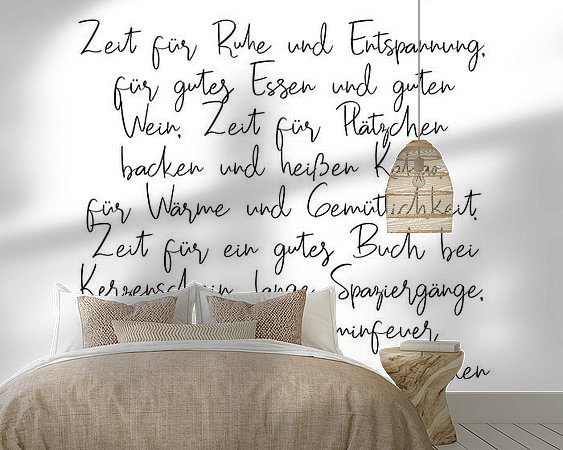 Zeit für Ruhe und Entspannung,
für gutes Essen und guten
Wein. Zeit für Plätzchen
backen und heißen Kakao
für Wärme und Gemütlichkeit.
Zeit für ein gutes Buch bei
Kerzenschein, lange Spaziergänge,
minfeuer